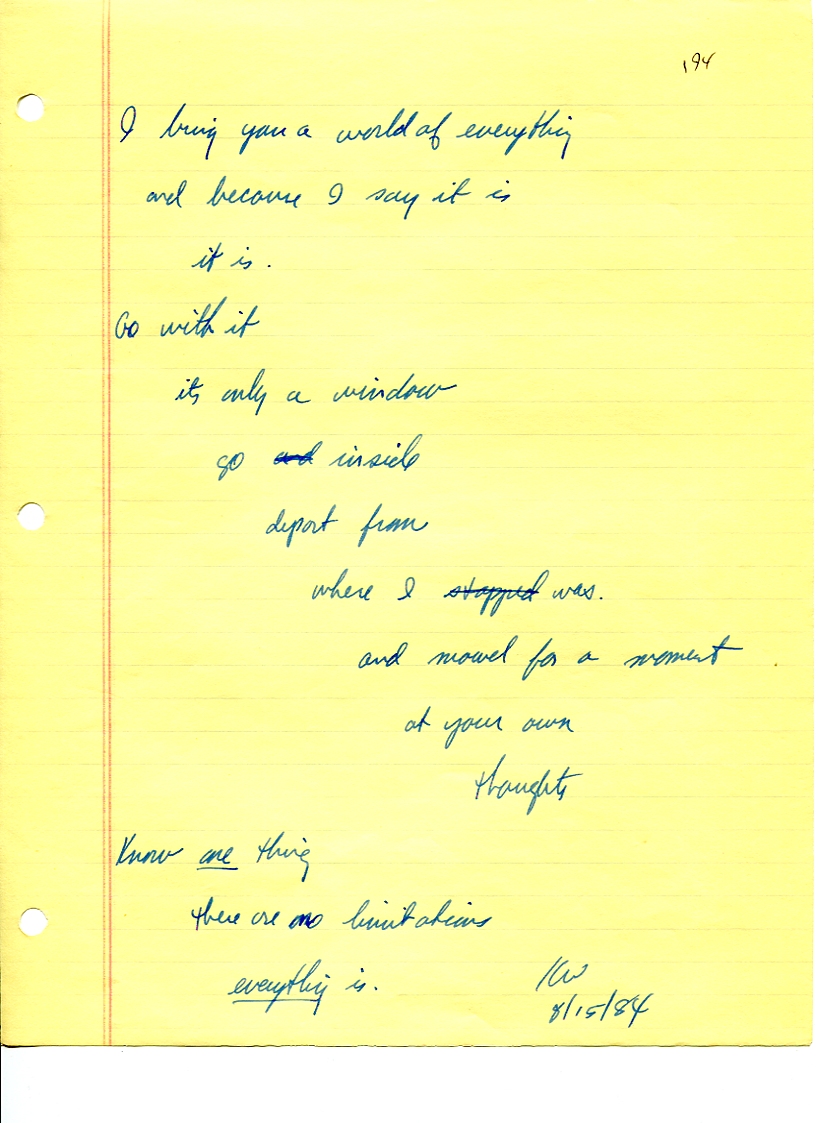 194
I bring you a world of everything
and because I say it is
it is.
Go with it
its only a window
go and inside
depart from
where I stopped was.
and marvel for a moment
at your own
thoughts
Know one thing
there are no limitations
everything is.
KW
8/15/84